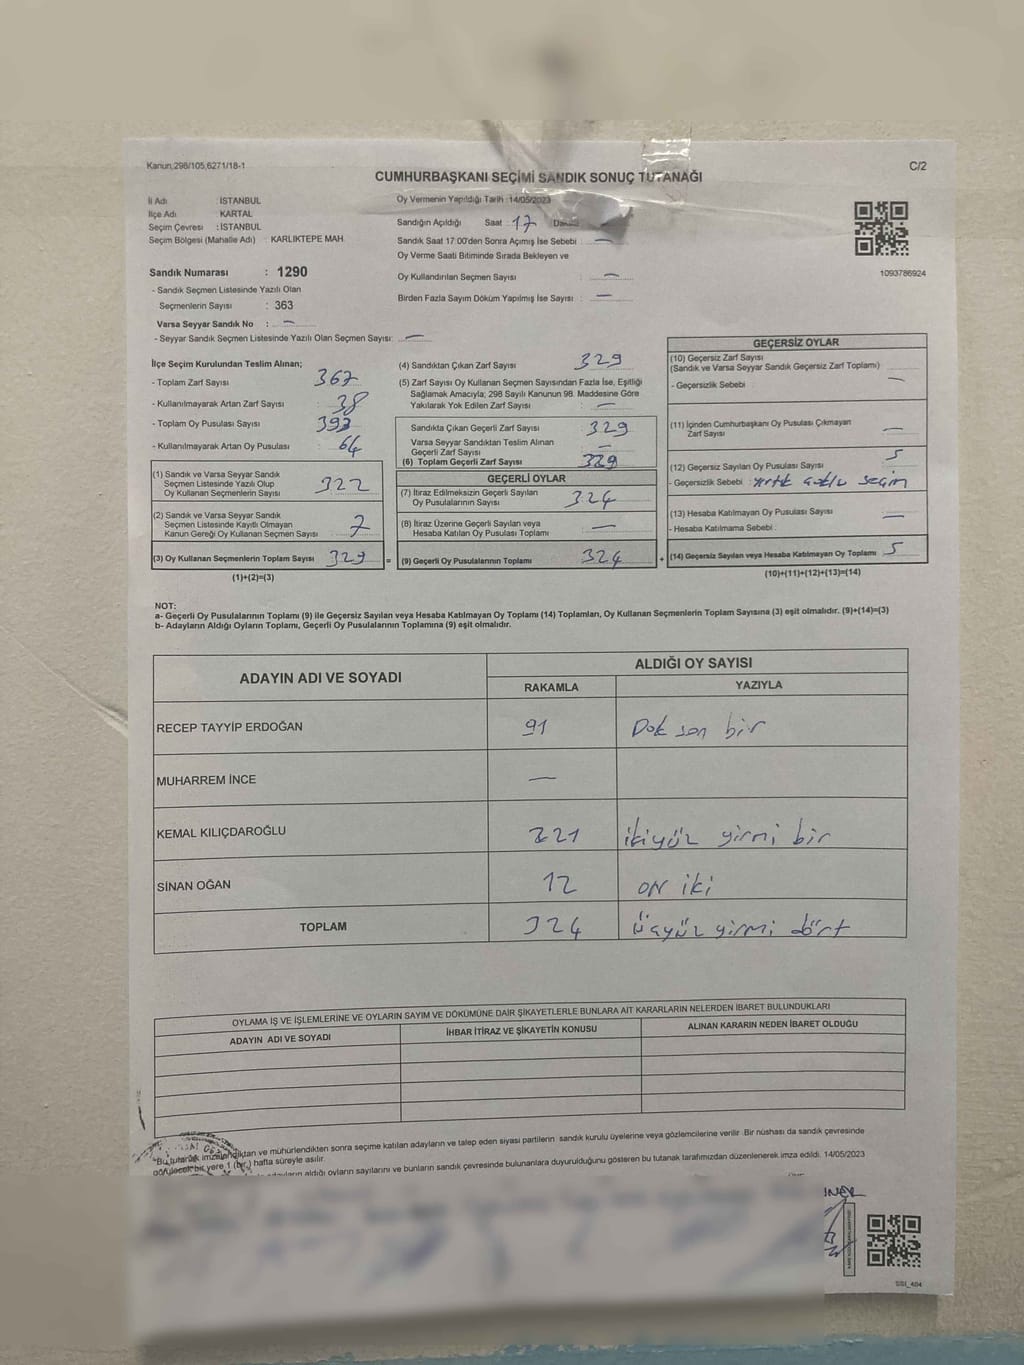 Kanun;298/105,6271/18-1
C/2
CUMHURBAŞKANI SEÇİMİ SANDIK SONUÇ TUTANAĞI
İl Adı : İSTANBUL
İlçe Adı : KARTAL
Seçim Çevresi : İSTANBUL
Seçim Bölgesi (Mahalle Adı) : KARLIKTEPE MAH.
Sandık Numarası : 1290
- Sandık Seçmen Listesinde Yazılı Olan
Seçmenlerin Sayısı : 363
Varsa Seyyar Sandık No : —
- Seyyar Sandık Seçmen Listesinde Yazılı Olan Seçmen Sayısı: —
Oy Vermenin Yapıldığı Tarih :14/05/2023
Sandığın Açıldığı Saat : 17
Sandık Saat 17:00'den Sonra Açımış İse Sebebi : —
Oy Verme Saati Bitiminde Sırada Bekleyen ve
Oy Kullandırılan Seçmen Sayısı : —
Birden Fazla Sayım Döküm Yapılmış İse Sayısı : —
1093786924
İlçe Seçim Kurulundan Teslim Alınan;
- Toplam Zarf Sayısı : 367
- Kullanılmayarak Artan Zarf Sayısı : 38
- Toplam Oy Pusulası Sayısı : 393
- Kullanılmayarak Artan Oy Pusulası : 64
(1) Sandık ve Varsa Seyyar Sandık
Seçmen Listesinde Yazılı Olup
Oy Kullanan Seçmenlerin Sayısı 322
(2) Sandık ve Varsa Seyyar Sandık
Seçmen Listesinde Kayıtlı Olmayan
Kanun Gereği Oy Kullanan Seçmen Sayısı 7
(3) Oy Kullanan Seçmenlerin Toplam Sayısı 329
(1)+(2)=(3)
(4) Sandıktan Çıkan Zarf Sayısı 329
(5) Zarf Sayısı Oy Kullanan Seçmen Sayısından Fazla İse, Eşitliği
Sağlamak Amacıyla; 298 Sayılı Kanunun 98. Maddesine Göre
Yakılarak Yok Edilen Zarf Sayısı : —
Sandıkta Çıkan Geçerli Zarf Sayısı : 329
Varsa Seyyar Sandıktan Teslim Alınan
Geçerli Zarf Sayısı : —
(6) Toplam Geçerli Zarf Sayısı 329
GEÇERLİ OYLAR
(7) İtiraz Edilmeksizin Geçerli Sayılan
Oy Pusulalarının Sayısı 324
(8) İtiraz Üzerine Geçerli Sayılan veya
Hesaba Katılan Oy Pusulası Toplamı —
= (9) Geçerli Oy Pusulalarının Toplamı 324 +
GEÇERSİZ OYLAR
(10) Geçersiz Zarf Sayısı
(Sandık ve Varsa Seyyar Sandık Geçersiz Zarf Toplamı)
- Geçersizlik Sebebi : —
(11) İçinden Cumhurbaşkanı Oy Pusulası Çıkmayan
Zarf Sayısı —
(12) Geçersiz Sayılan Oy Pusulası Sayısı 5
- Geçersizlik Sebebi : seçim
(13) Hesaba Katılmayan Oy Pusulası Sayısı —
- Hesaba Katılmama Sebebi :
(14) Geçersiz Sayılan veya Hesaba Katılmayan Oy Toplamı 5
(10)+(11)+(12)+(13)=(14)
NOT:
a- Geçerli Oy Pusulalarının Toplamı (9) ile Geçersiz Sayılan veya Hesaba Katılmayan Oy Toplamı (14) Toplamları, Oy Kullanan Seçmenlerin Toplam Sayısına (3) eşit olmalıdır. (9)+(14)=(3)
b- Adayların Aldığı Oyların Toplamı, Geçerli Oy Pusulalarının Toplamına (9) eşit olmalıdır.
ADAYIN ADI VE SOYADI ALDIĞI OY SAYISI
RAKAMLA YAZIYLA
RECEP TAYYİP ERDOĞAN 91 Dok san bir
MUHARREM İNCE —
KEMAL KILIÇDAROĞLU 221 ikiyüz yirmi bir
SİNAN OĞAN 12 on iki
TOPLAM 324 üçyüz yirmi dört
OYLAMA İŞ VE İŞLEMLERİNE VE OYLARIN SAYIM VE DÖKÜMÜNE DAİR ŞİKAYETLERLE BUNLARA AİT KARARLARIN NELERDEN İBARET BULUNDUKLARI
ADAYIN ADI VE SOYADI İHBAR İTİRAZ VE ŞİKAYETİN KONUSU ALINAN KARARIN NEDEN İBARET OLDUĞU
"Bu tutanak imzalandıktan ve mühürlendikten sonra seçime katılan adayların ve talep eden siyasi partilerin sandık kurulu üyelerine veya gözlemcilerine verilir. Bir nüshası da sandık çevresinde
görülecek bir yere 1 (bir) hafta süreyle asılır.
aldığı oyların sayılarını ve bunların sandık çevresinde bulunanlara duyurulduğunu gösteren bu tutanak tarafımızdan düzenlenerek imza edildi. 14/05/2023
SSI_404